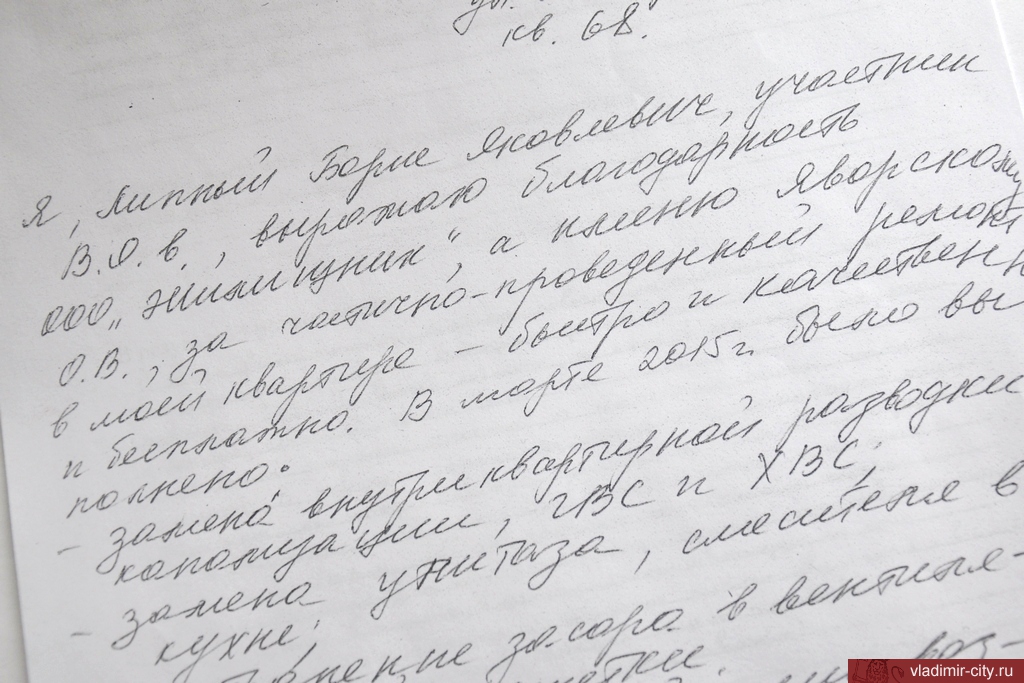 кв. 68.
Я, Липный Борис Яковлевич, участник
В.О.в., выражаю благодарность
ООО „Жилищник“, а имено Яворском
О.В., за частично-проведенный ремонт
в моей квартире – быстро и качественн
и бесплатно. В марте 2015 г. было вы
полнено:
– замена внутриквартирной разводки
канализации, ГВС и ХВС;
– замена унитаза, смесителя в
кухне;
засора в вентиля-
vladimir-city.ru